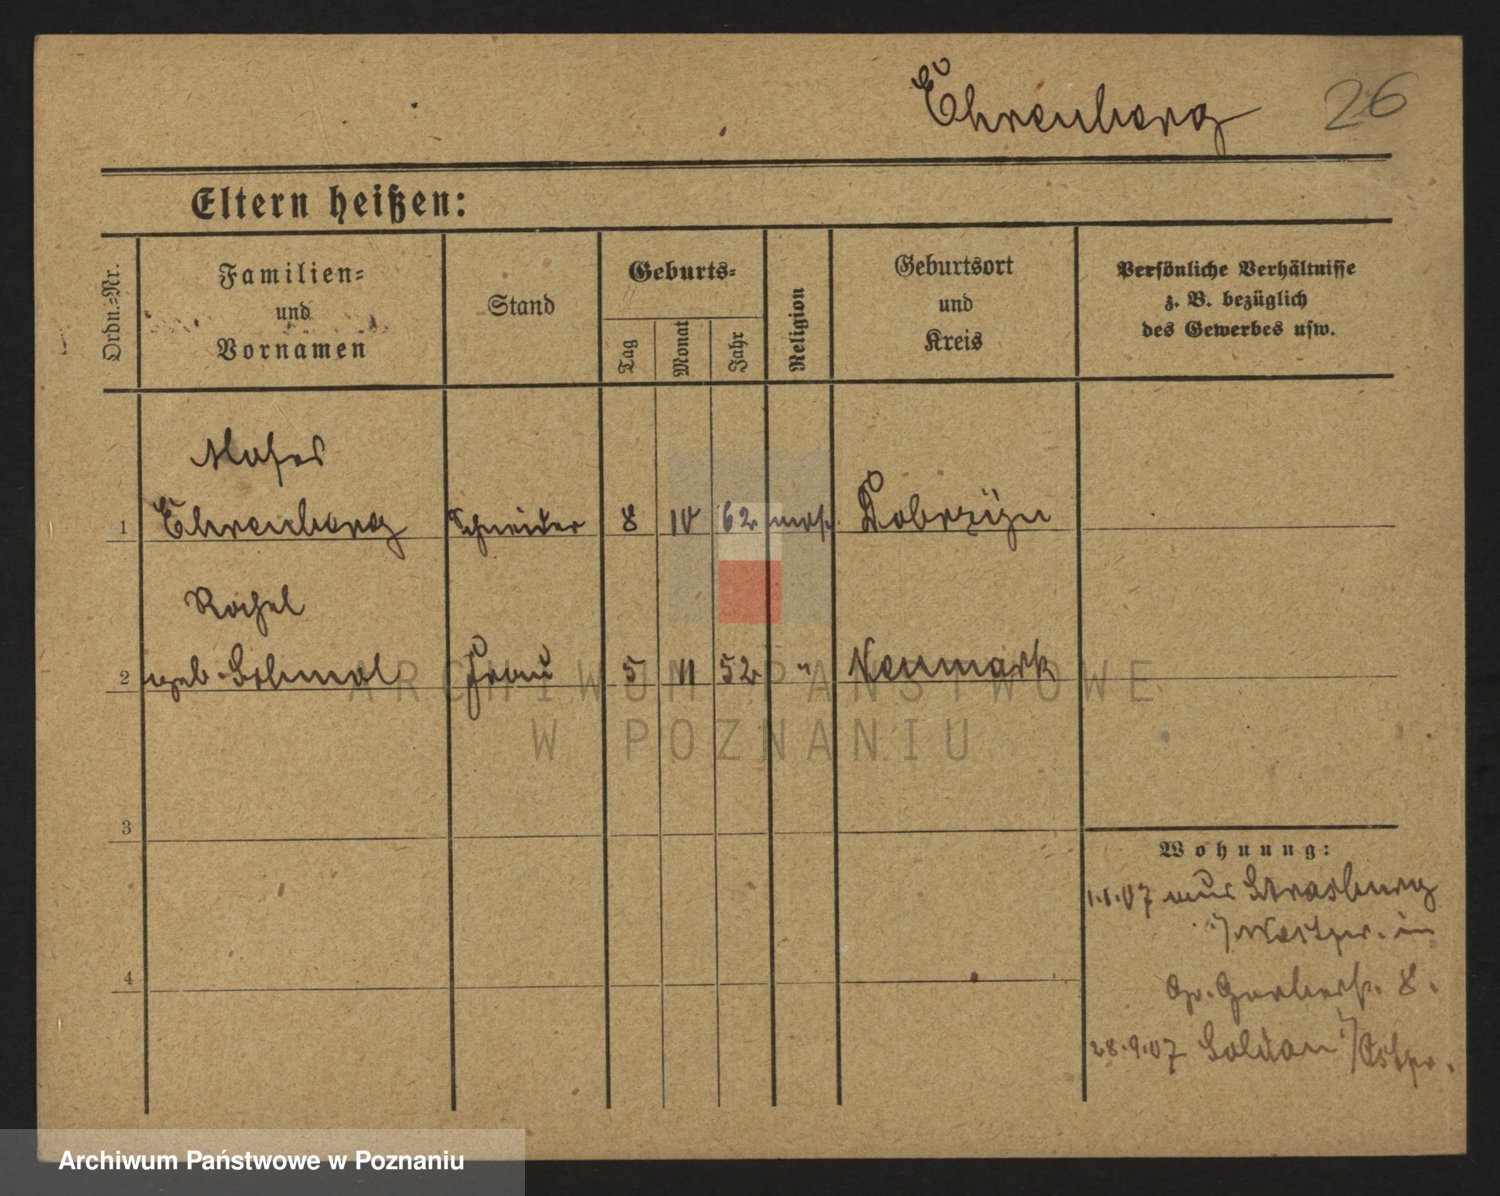 Ehrenberg 26
Eltern heißen:
Ordn.-Nr.
Familien-
und
Vornamen
Stand
Geburts-
Tag
Monat
Jahr
Religion
Geburtsort
und
Kreis
Persönliche Verhältnisse
z. B. bezüglich
des Gewerbes usw.
Moses
1 Ehrenberg Schneider 8 10 62 mos. Dobrzyn
Rachel
2 geb. Frau 5 11 52 " Neumark
3
4
Wohnung:
1.1.07 aus Strasburg
i/Westpr. in
Gr. Gerberst. 8.
28.9.07 Soldau i/Ostpr.
ARCHIWUM PAŃSTWOWE
W POZNANIU
Archiwum Państwowe w Poznaniu